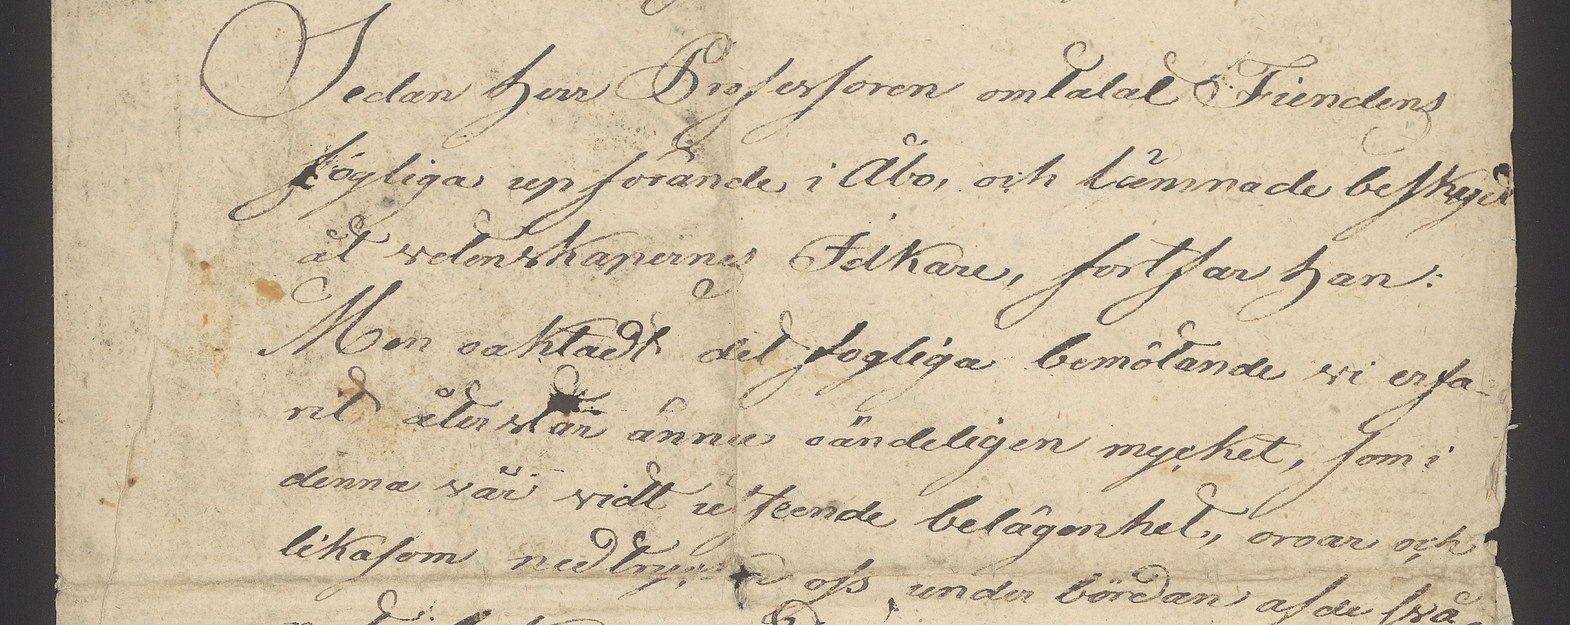 Sedan Herr Professoren omtalat Fiendens
fogliga upförande i Åbo, och lämnade beskydd
åt vetenskapernes Idkare, fortfar han:
Men oaktadt det fogliga bemötande vi erfa-
rit återstår ännu oändeligen mycket, som i
denna vår vidt utseende belägenhet, oroar och
likasom nedtrycka oss under bördan af de svå-